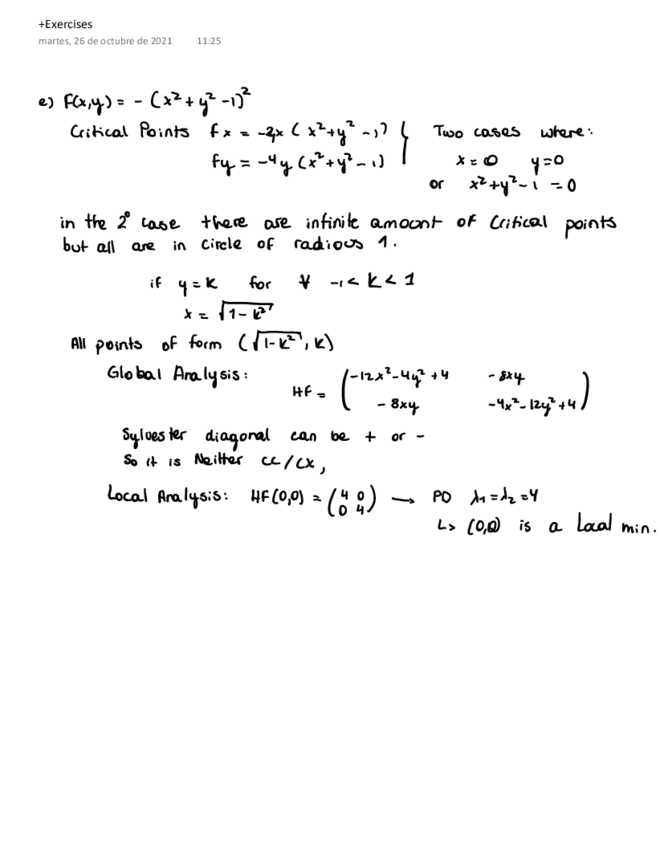 +Exercises
martes, 26 de octubre de 2021 11:25
e) F(x,y) = - (x² + y² -1)²
Critical Points fx = -2x (x² + y² -1) } Two cases where:
fy = -4y (x² + y² -1) x = 0 y=0
or x² + y² -1 = 0
in the 2º case there are infinite amount of Critical points
but all are in circle of radious 1.
if y = k for ∀ -1 < k < 1
x = √(1-k²)
All points of form (√(1-k²), k)
Global Analysis: HF = ( -12x² -4y² +4 -8xy
-8xy -4x² -12y² +4 )
Sylvester diagonal can be + or -
So it is Neither cc/cx,
Local Analysis: HF(0,0) = ( 4 0 → PD λ1 = λ2 = 4
0 4 )
↳ (0,0) is a local min.